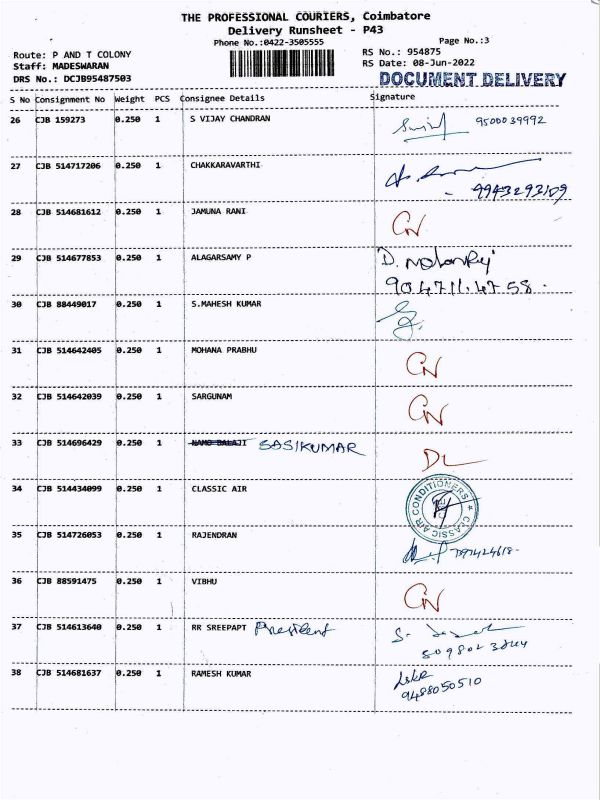 THE PROFESSIONAL COURIERS, Coimbatore
Delivery Runsheet - P43
Phone No.:0422-3505555
Page No.:3
Route: P AND T COLONY
RS No.: 954875
Staff: MADESWARAN
RS Date: 08-Jun-2022
DRS No.: DCJB95487503
DOCUMENT DELIVERY
S No Consignment No Weight PCS Consignee Details Signature
26 CJB 159273 0.250 1 S VIJAY CHANDRAN 9500039992
27 CJB 514717206 0.250 1 CHAKKARAVARTHI
- 9943293109
28 CJB 514681612 0.250 1 JAMUNA RANI CN
29 CJB 514677853 0.250 1 ALAGARSAMY P D.
9047711.4758.
30 CJB 88449017 0.250 1 S.MAHESH KUMAR
31 CJB 514642405 0.250 1 MOHANA PRABHU CN
32 CJB 514642039 0.250 1 SARGUNAM CN
33 CJB 514696429 0.250 1 NAMO BALAJI SASIKUMAR DL
34 CJB 514434099 0.250 1 CLASSIC AIR CLASSIC AIR CONDITIONERS
35 CJB 514726053 0.250 1 RAJENDRAN
36 CJB 88591475 0.250 1 VIBHU CN
37 CJB 514613640 0.250 1 RR SREEPAPT President S.
38 CJB 514681637 0.250 1 RAMESH KUMAR
9488050510